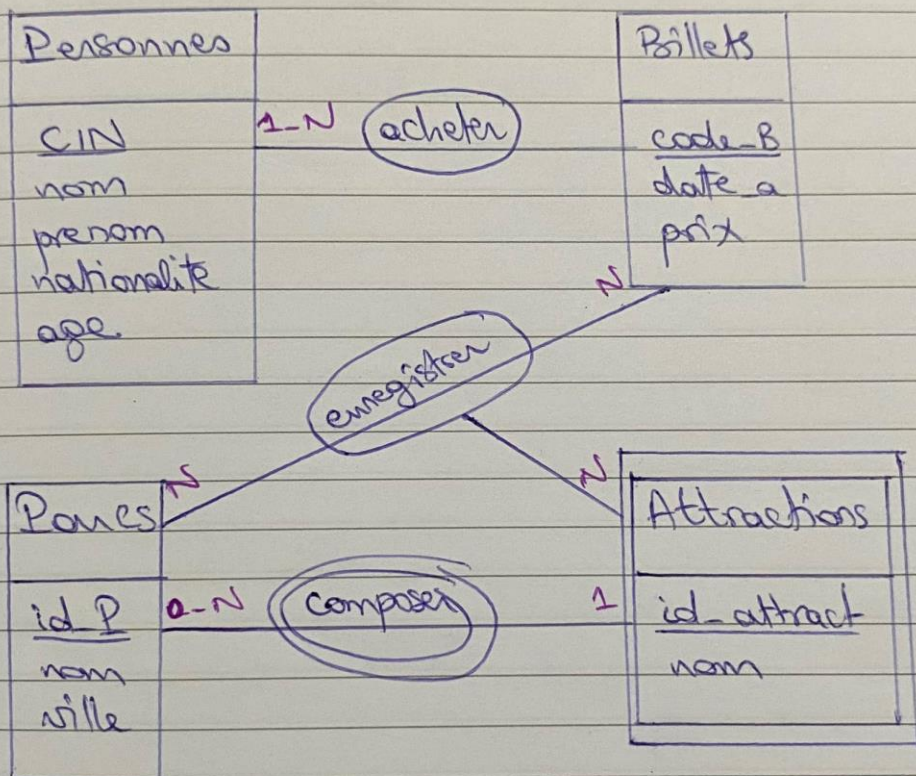 Personnes
CIN
nom
prenom
nationalite
age
1-N
acheter
Billets
code_B
date_a
prix
N
enregistrer
N
N
Parcs
id_P
nom
ville
0-N
composer
1
Attractions
id_attract
nom